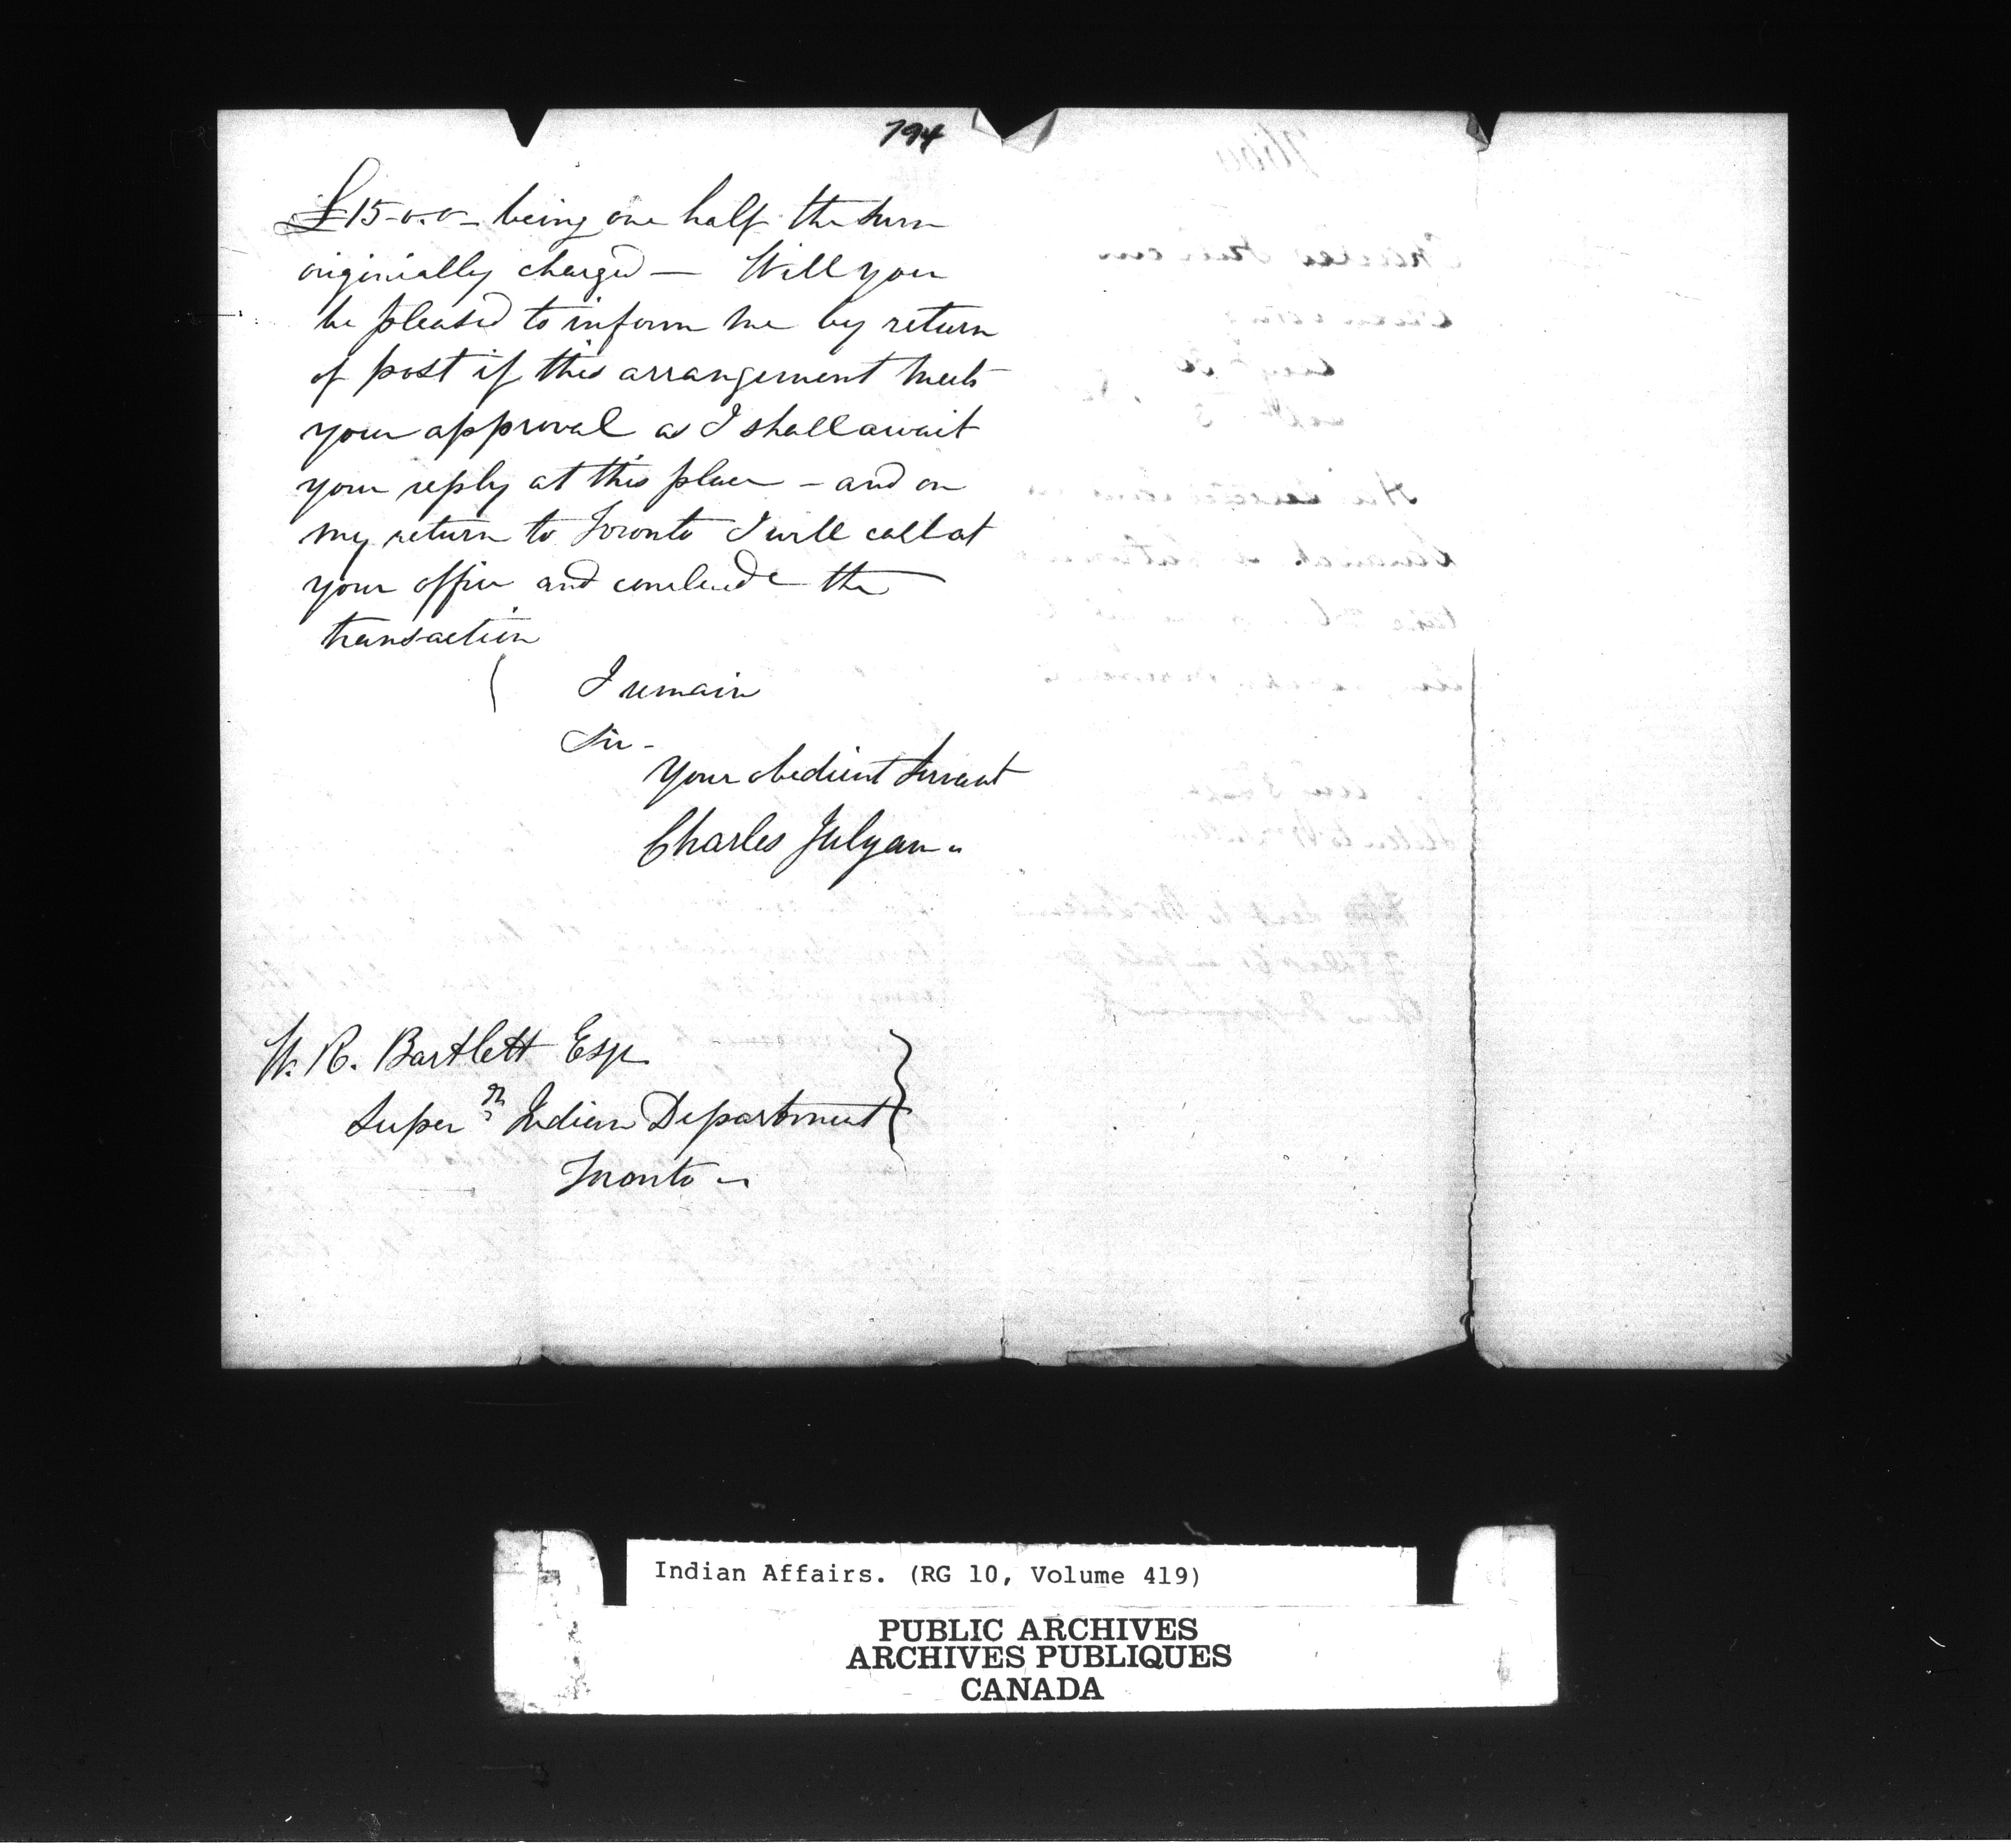 794
£15-0.0- being one half the sum
originially charged — Will you
be pleased to inform me by return
of post if this arrangement meets
your approval as I shall await
your reply at this place – and on
my return to Toronto I will call at
your office and conclude the
transaction
I remain
Sir -
Your obedient Servant
Charles Julyan
W. R. Bartlett Esqr
Super Indian Department
Toronto
Indian Affairs. (RG 10, Volume 419)
PUBLIC ARCHIVES
ARCHIVES PUBLIQUES
CANADA